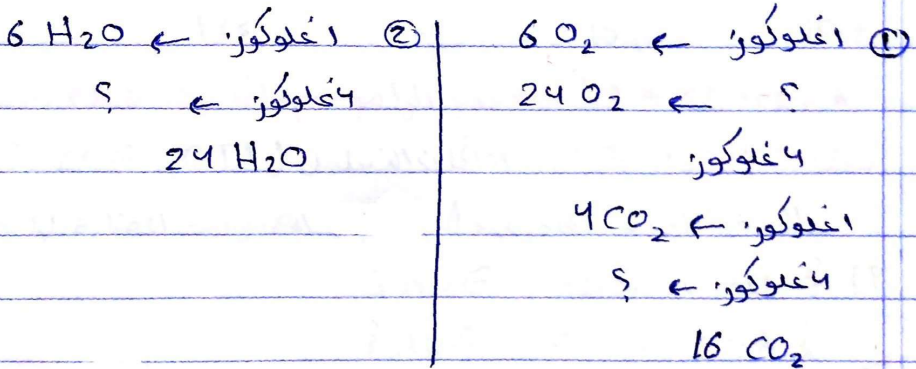 ① 1 غلوكوز ← 6 O₂
؟ ← 24 O₂
4 غلوكوز
1 غلوكوز ← 4 CO₂
4 غلوكوز ← ؟
16 CO₂
② 1 غلوكوز ← 6 H₂O
4 غلوكوز ← ؟
24 H₂O